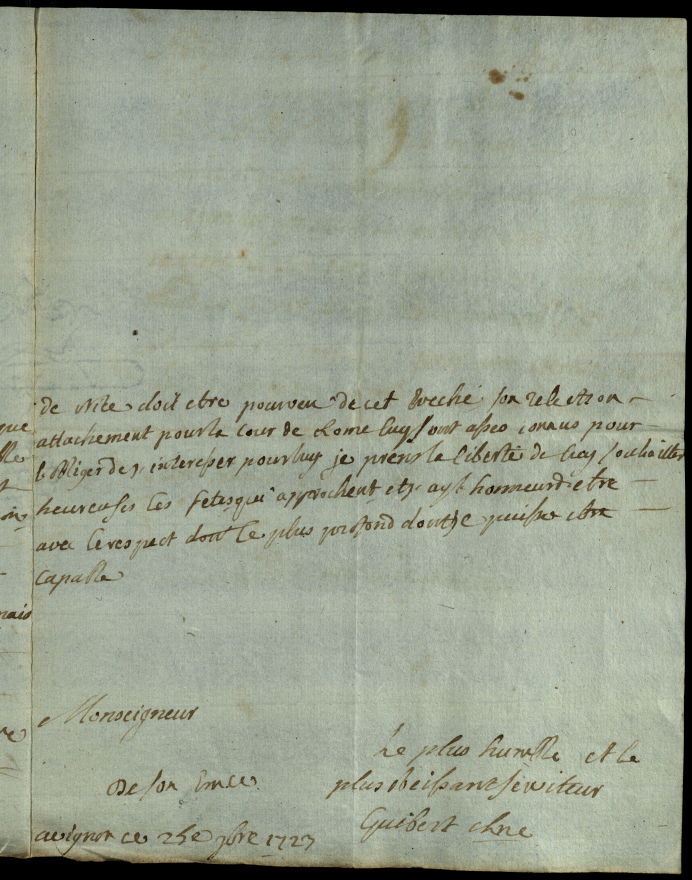 de Nice doit etre pourveu de cet Eveché son zele et son
attachement pour la Cour de Rome luy sont asses connus pour
l'obliger de s'interesser pour luy je prens la liberté de luy souhaitter
heureuses les festes qui approchent et j'ay l'honneur d'etre
avec le respect dont le plus profond dont je puisse etre
capable
Monseigneur
De son Emce
Le plus humble et le
plus obeissant serviteur
Guibert chne
avignon ce 9bre 1723
que
mais